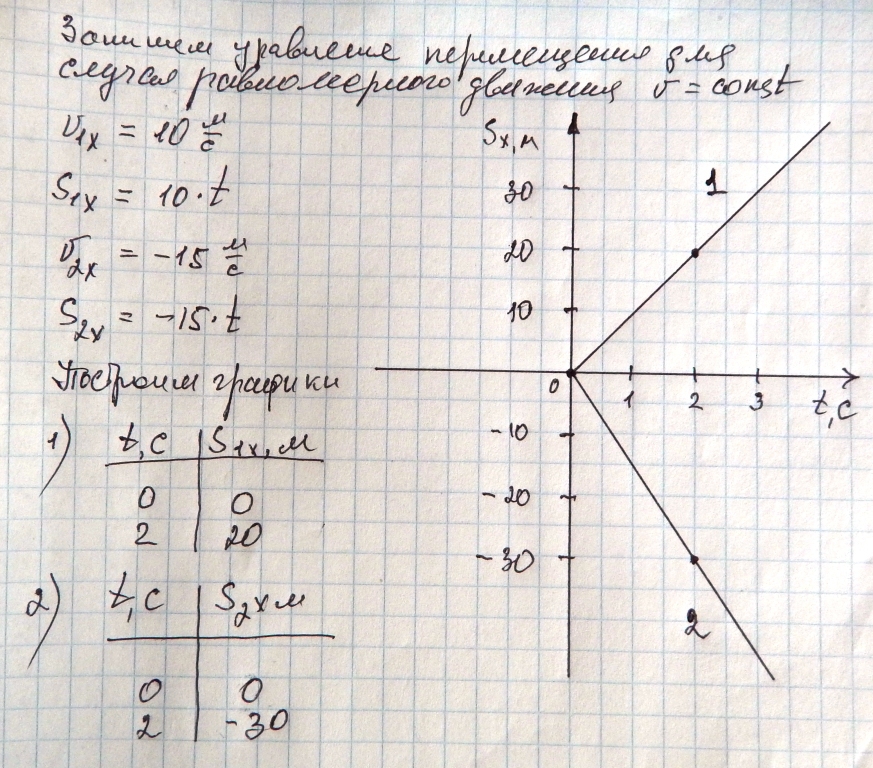 Запишем уравнение перемещения для
случая равномерного движения v = const
v₁ₓ = 10 м/с
S₁ₓ = 10 · t
v₂ₓ = -15 м/с
S₂ₓ = -15 · t
Построим графики
1)
t, с | S₁ₓ, м
0 | 0
2 | 20
2)
t, с | S₂ₓ м
0 | 0
2 | -30
Sₓ, м
30
20
10
0
1 2 3
t, с
-10
-20
-30
1
2